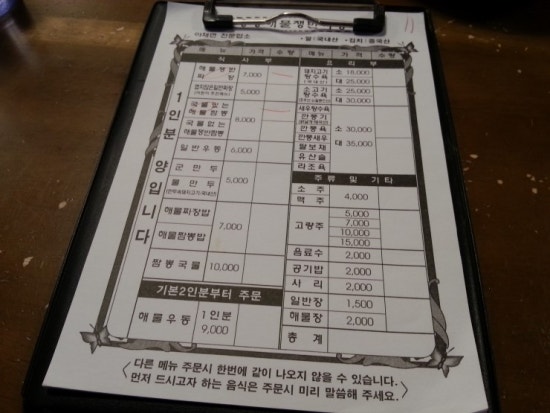 해물쟁반
아채면 전문업소
*쌀:국내산 *김치:중국산
메뉴 가격 수량 메뉴 가격 수량
식사부
요리부
1인분 양입니다
해물쟁반
짜장 7,000
5,000
국물있는
해물짬뽕
국물없는
해물쟁반짬뽕
8,000
일반우동 6,000
군만두
물만두
5,000
해물짜장밥
해물짬뽕밥
7,000
짬뽕국물 10,000
기본2인분부터 주문
해물우동 1인분
9,000
돼지고기
탕수육
소 18,000
대 25,000
소고기
탕수육
소 25,000
대 30,000
새우탕수육
깐풍기
깐풍육
깐풍새우
팔보채
유산슬
라조육
소 30,000
대 35,000
주류 및 기타
소주
맥주
4,000
고량주
5,000
7,000
10,000
15,000
음료수 2,000
공기밥 2,000
사리 2,000
일반장 1,500
해물장 2,000
총계
다른 메뉴 주문시 한번에 같이 나오지 않을 수 있습니다.
먼저 드시고자 하는 음식은 주문시 미리 말씀해 주세요.